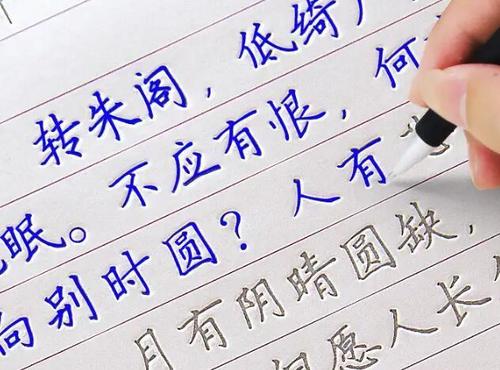 转朱阁，低绮
眠。不应有恨，何
向别时圆？人有
月有阴晴圆缺，
但愿人长